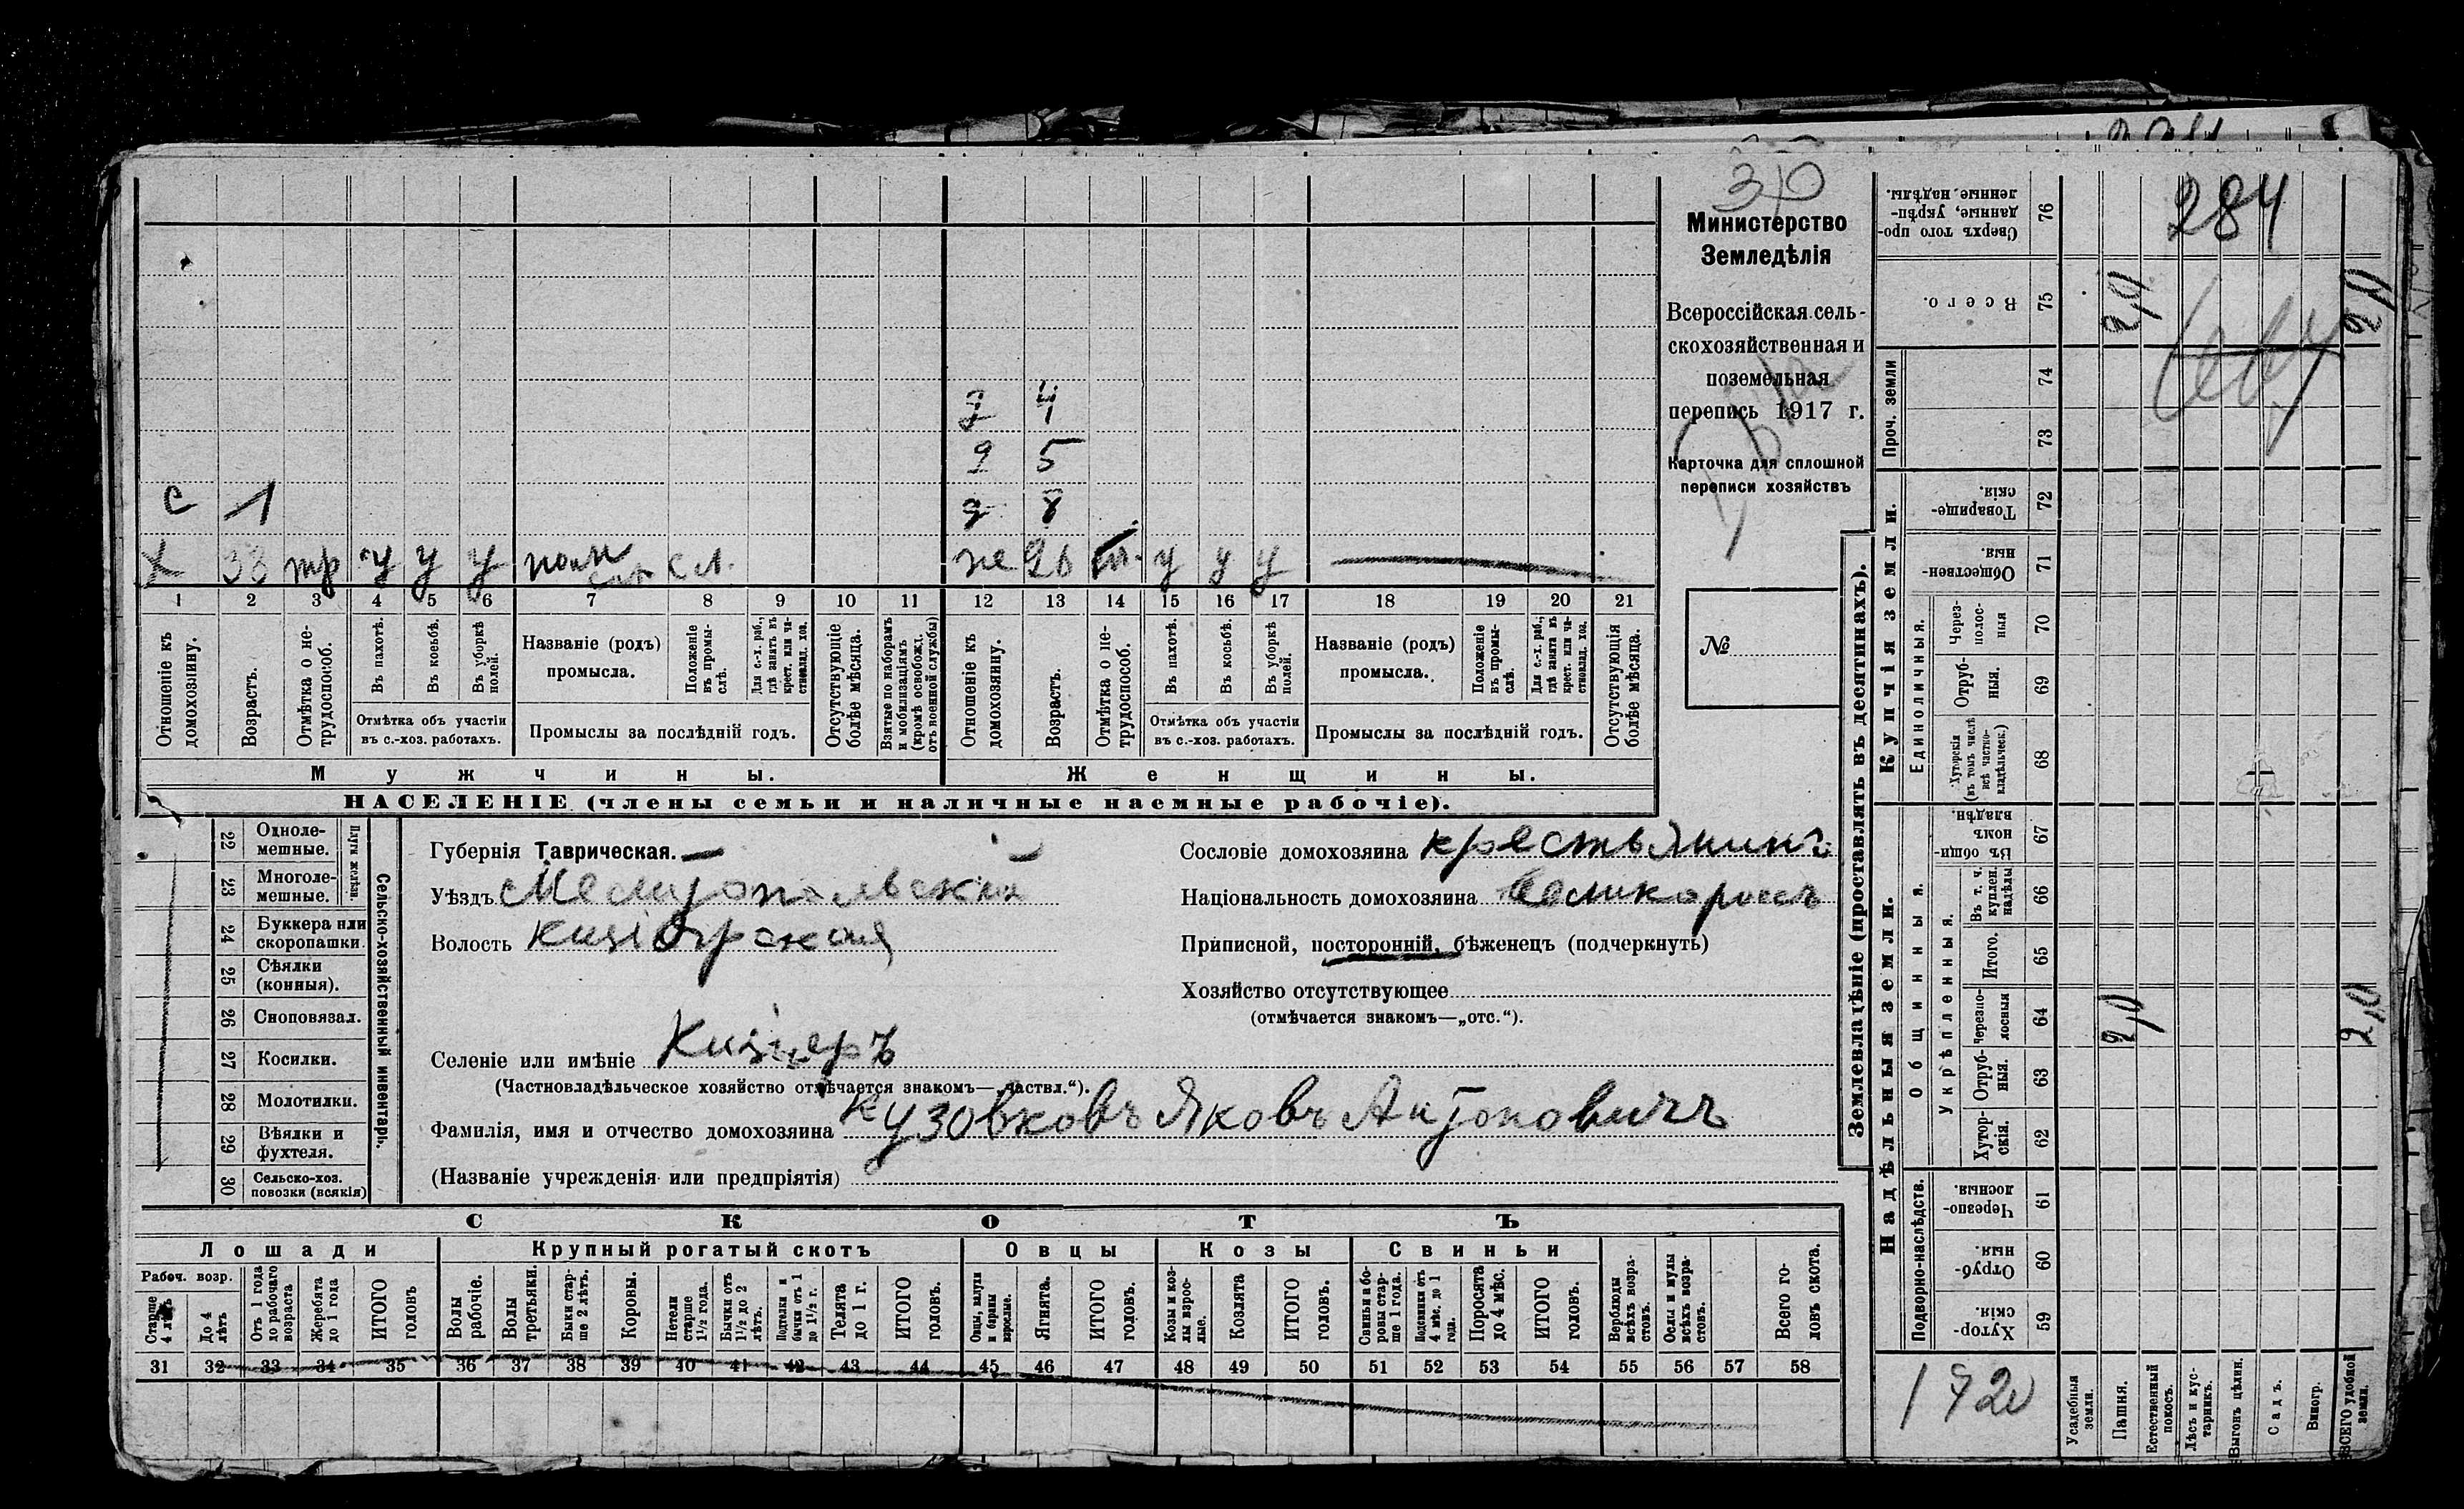 30
284
Министерство
Земледѣлія
Всероссійская сель-
скохозяйственная и
поземельная
перепись 1917 г.
Карточка для сплошной
переписи хозяйствъ
№
2,0 2,0
д 4
д 5
с 1 д 8
х 33 тр у у у сл. же 26 у у у
1 2 3 4 5 6 7 8 9 10 11 12 13 14 15 16 17 18 19 20 21
Отношеніе къ домохозяину.
Возрастъ.
Отмѣтка о не-трудоспособ.
Въ пахотѣ.
Въ косьбѣ.
Въ уборкѣ полей.
Отмѣтка объ участіи
въ с.-хоз. работахъ.
Названіе (родъ)
промысла.
Положеніе въ промы-слѣ.
Для с.-х. раб., гдѣ занятъ въ крест. или ча-стновлад. хоз.
Промыслы за послѣдній годъ.
Отсутствующіе болѣе мѣсяца.
Взятые по наборамъ и мобилизаціямъ (кромѣ освобожд. отъ военной службы)
Отношеніе къ домохозяину.
Возрастъ.
Отмѣтка о не-трудоспособ.
Въ пахотѣ.
Въ косьбѣ.
Въ уборкѣ полей.
Отмѣтка объ участіи
въ с.-хоз. работахъ.
Названіе (родъ)
промысла.
Положеніе въ промы-слѣ.
Для с.-х. раб., гдѣ занята въ крест. или ча-стновлад. хоз.
Промыслы за послѣдній годъ.
Отсутствующія болѣе мѣсяца.
Мужчины. Женщины.
НАСЕЛЕНІЕ (члены семьи и наличные наемные рабочіе).
Сельско-хозяйственный инвентарь.
Плуги желѣзн.
22 Одноле-мешные.
23 Многоле-мешные.
24 Буккера или скоропашки.
25 Сѣялки (конныя).
26 Сноповязал.
27 Косилки.
28 Молотилки.
29 Вѣялки и фухтеля.
30 Сельско-хоз. повозки (всякія)
Губернія Таврическая.
Уѣздъ Мелитопольскій
Волость Кизіярская
Селеніе или имѣніе Кизіяръ
(Частновладѣльческое хозяйство отмѣчается знакомъ—„частвл.“).
Фамилія, имя и отчество домохозяина Кузовковъ Яковъ Антоновичъ
(Названіе учрежденія или предпріятія)
Сословіе домохозяина крестьянинъ
Національность домохозяина великороссъ
Приписной, посторонній, бѣженецъ (подчеркнуть)
Хозяйство отсутствующее
(отмѣчается знакомъ—„отс.“).
СКОТЪ
Лошади Крупный рогатый скотъ Овцы Козы Свиньи
Рабоч. возр.
Старше 4 лѣтъ
До 4 лѣтъ
Отъ 1 года до рабочаго возраста
Жеребята до 1 года
ИТОГО головъ
Волы рабочіе.
Волы третьяки.
Быки стар-ше 2 лѣтъ.
Коровы.
Нетели старше 1½ года.
Бычки отъ 1½ до 2 лѣтъ.
Подтелки и бычки отъ 1 до 1½ г.
Телята до 1 г.
ИТОГО головъ.
Овцы, валухи и бараны взрослые.
Ягнята.
ИТОГО головъ.
Козы и коз-лы взрос-лые.
Козлята
ИТОГО головъ.
Свиньи и бо-ровы стар-ше 1 года.
Подсвинки отъ 4 мѣс. до 1 года.
Поросята до 4 мѣс.
ИТОГО головъ.
Верблюды всѣхъ возра-стовъ.
Ослы и мулы всѣхъ возра-стовъ.
Всего го-ловъ скота.
31 32 33 34 35 36 37 38 39 40 41 42 43 44 45 46 47 48 49 50 51 52 53 54 55 56 57 58
Землевладѣніе (проставлять въ десятинахъ).
Сверхъ того про-данные, укрѣп-ленные надѣлы. 76
Всего. 75
Проч. земли
74
73
Купчія земли.
Товарище-скія. 72
Обществен-ныя. 71
Единоличныя.
Через-полос-ныя 70
Отруб-ныя. 69
Хуторскія (въ томъ числѣ всѣ частно-владѣльческ.) 68
Надѣльныя земли.
Общинныя.
Въ общин-номъ владѣн. 67
Укрѣпленныя.
Въ т. ч. куплен. надѣлы 66
Итого. 65
Черезпо-лосныя 64 2,0 2,0
Отруб-ныя. 63
Хутор-скія. 62
Подворно-наслѣдств.
Черезпо-лосныя. 61
Отруб-ныя. 60
Хутор-скія. 59
Усадебныя земли.
Пашня.
Естественный покосъ.
Лѣсъ и кус-тарникъ.
Выгонъ цѣлин.
Садъ.
Виногр.
ВСЕГО удобной земли.